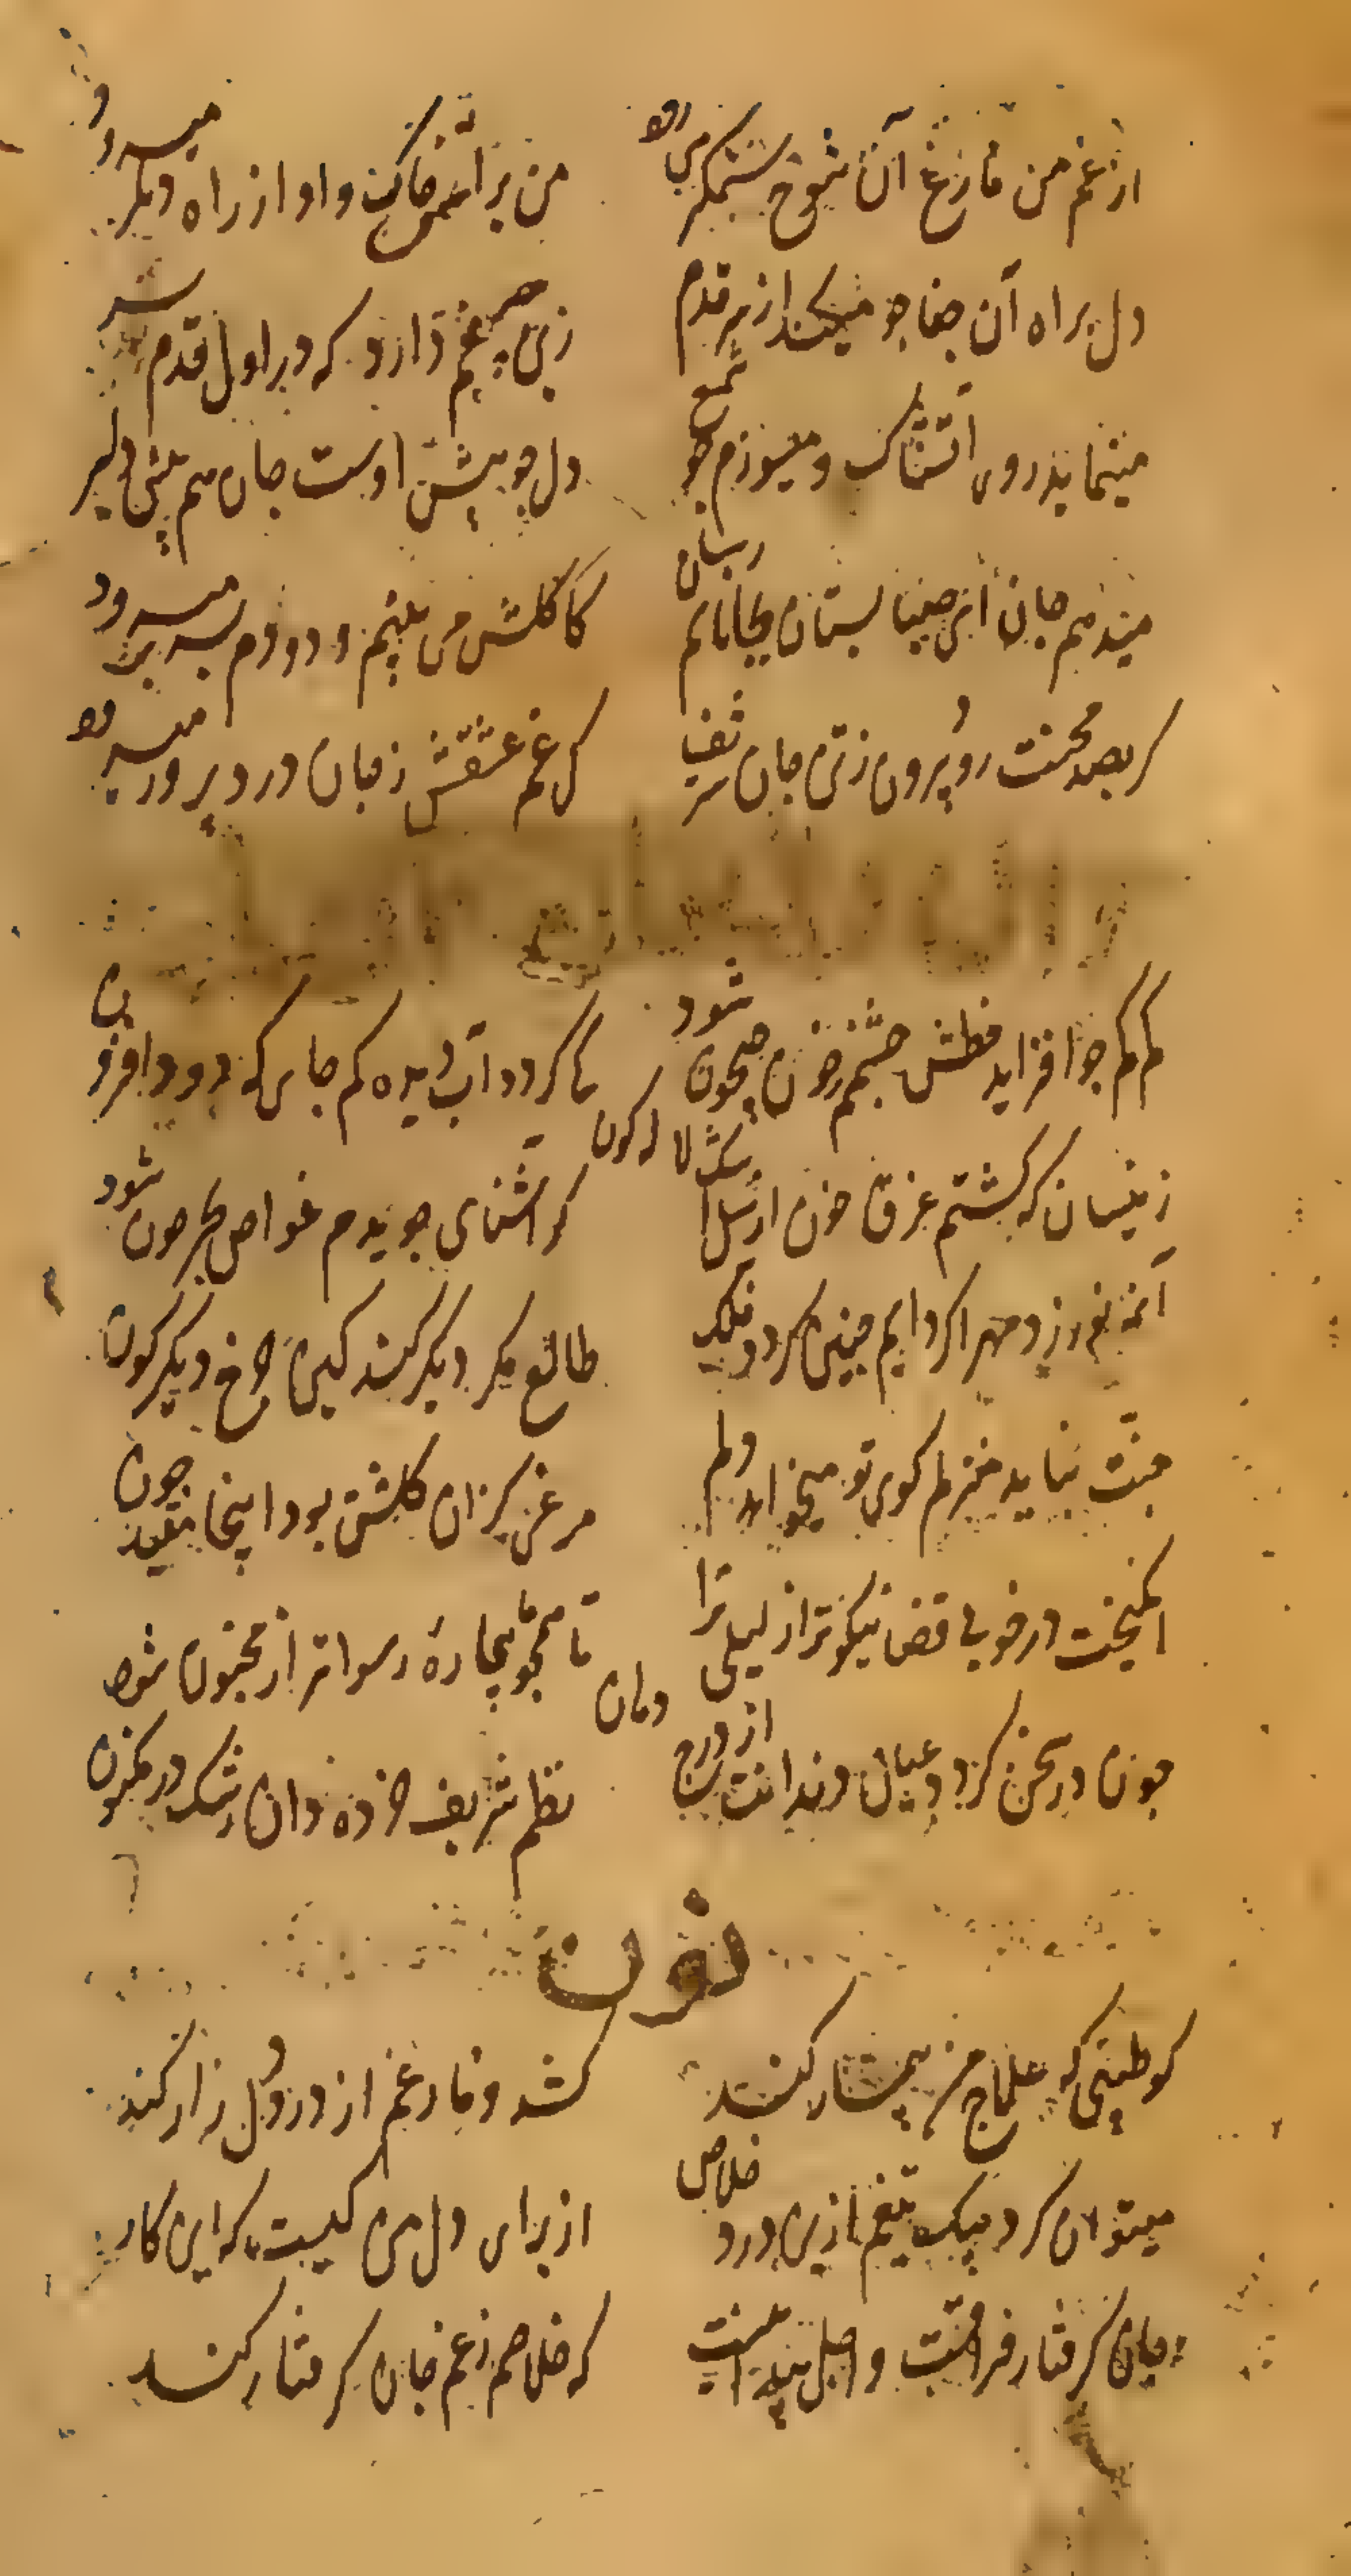 از غم من فارغ آن شوخ ستمگر می رود
من بر آتش خاک و او از راه دیگر میرود
دل براه آن جفا جو میکند از سر قدم
زین چه غم دارد که در اول قدم سر
مینماید روی آتشناک و میسوزم چو شمع
دل چو پیش اوست جان هم پیش دلبر
میدهم جان این چنین بستان
کاکلش می بینم و دودم بسر بر میرود
کر بصد محنت رود بیرون ز تن جان شریف
کی غم عشقش ز جان درد پرور میرود
کم کم چو افزاید خطش چشمم ز خون جیحون شود
تا گردد آب دیده کم جایی که دود افزون
زینسان که گشتم غرق خون از سیل اشک لاله گون
کو آشنای جویدم غواص بحر خون شود
آئینه نور زد مهر اگر دایم چنین گردد فلک
طالع مگر دیگر کند کین چرخ دیگرگون
جنت نباید منزلم کوی تو میخواهد دلم
مرغی کزان گلشن بود اینجا مقید چون
انگیخت در خوبی قضا نیکوتر از لیلی ترا
تا همچو ما بیچاره رسواتر از مجنون شود
چون در سخن گردد عیان دندانت از درج دهان
نظم شریف خرده دان رشک در مکنون
نون
کو طبیبی که علاج من بیمار کند
کشد و فارغم از درد دل زار کند
میتوان کرد بیک تیغم ازین درد خلاص
از برای دل من کیست که این کار
جان گرفتار فراقست و اجل پیدا نیست
که خلاصم ز غم جان گرفتار کند